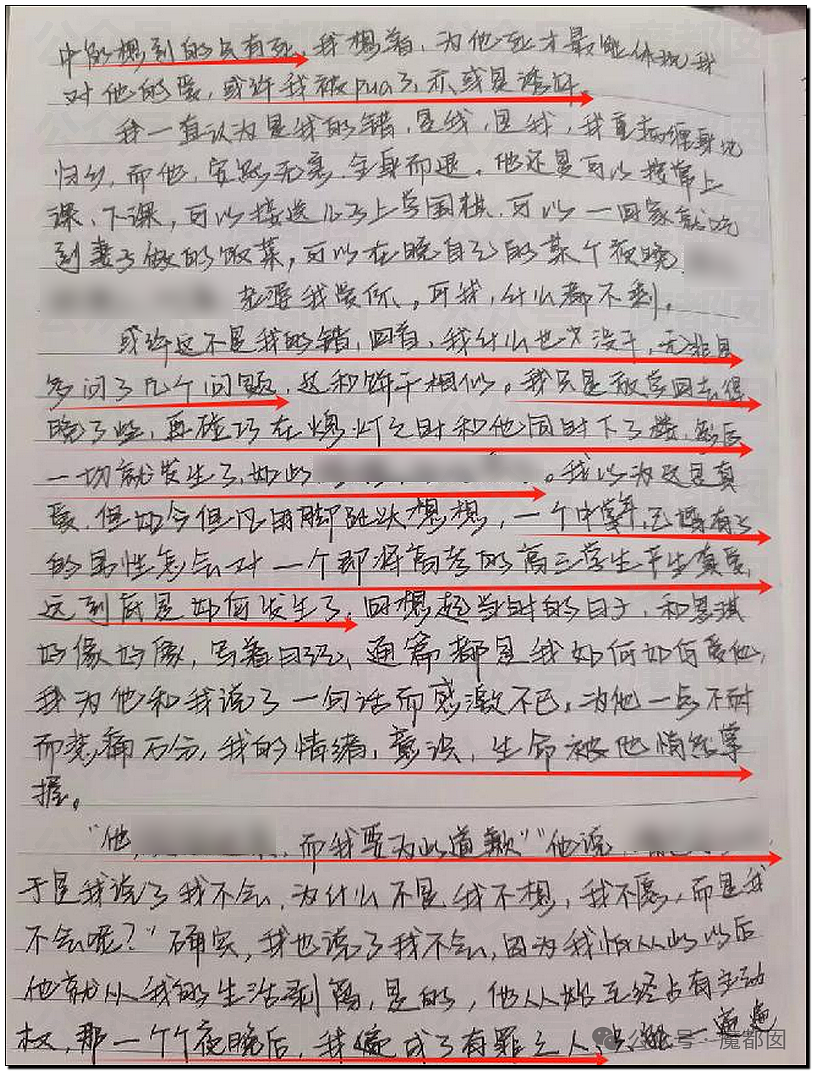 中的想到的只有死，我想着，为他死才最能体现我
对他的爱，或许我被pua了，亦或是诱奸。
我一直认为是我的错，是我，是我，我重病缠身地
归乡，而他，安然无恙，全身而退。他还是可以按常上
课、下课，可以接送儿子上学围棋，可以一回家就吃
到妻子做的饭菜，可以在晚自习的某个夜晚
老婆我爱你、。可我，什么都不剩。
或许这不是我的错，回首，我什么也没干，无非是
多问了几个问题，这和饼干相似。我只是放学回去得
晚了些，再碰巧在熄灯之时和他同时下了楼，然后
一切就发生了，如此 。我以为这是真
爱，但如今但凡用脚趾头想想，一个中年，已婚有子
的男性怎会对一个即将高考的高三学生产生真爱，
这到底是如何发生了。回想起当时的日子，和思琪
好像好像，写着日记，通篇都是我如何如何爱他，
我为他和我说了一句话而感激不已，为他一点不耐
而悲痛万分，我的情绪，意识，生命被他悄然掌
握。
“他 ，而我要为此道歉”“他说，
于是我说了我不会，为什么不是我不想，我不愿，而是我
不会呢？”确实，我也说了我不会，因为我怕从此以后
他就从我的生活剥离，是的，他从始至终占有主动
权，那一个个夜晚后，我便成了有罪之人，只能一遍遍
公众号·魔都囡